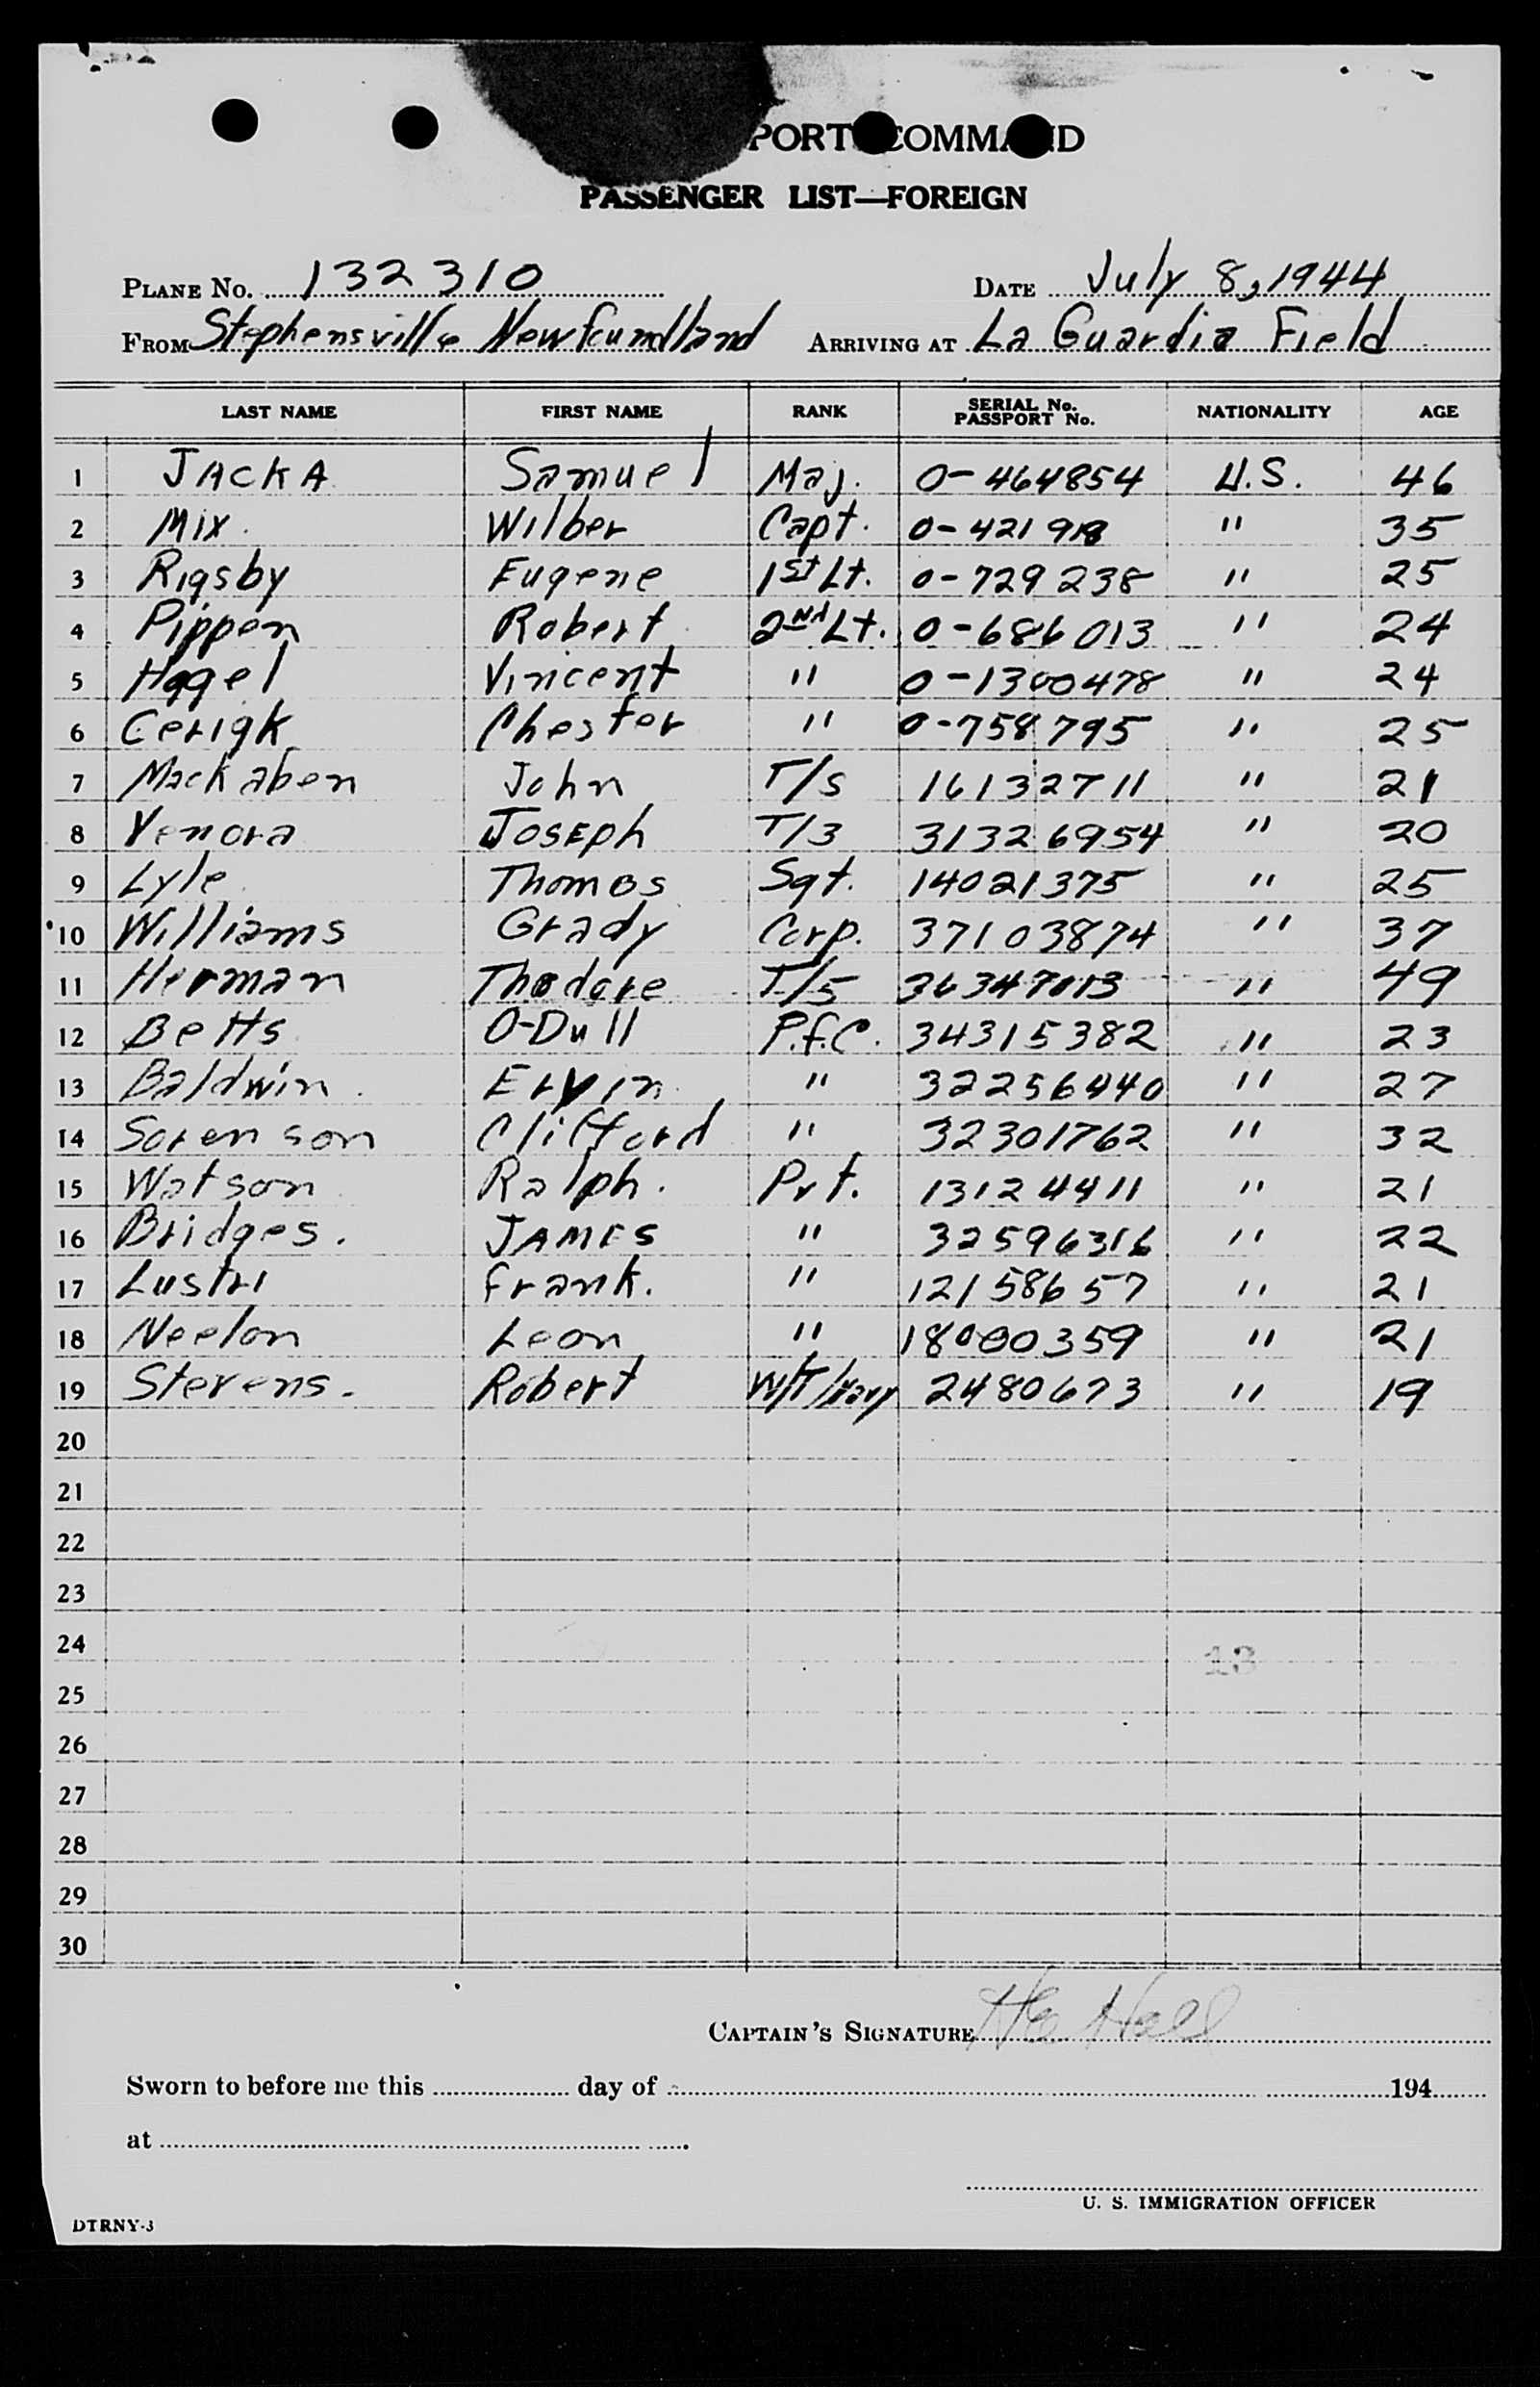 PORT COMMAND
PASSENGER LIST—FOREIGN
PLANE No. 132310 DATE July 8, 1944
FROM Stephensville Newfoundland ARRIVING AT La Guardia Field
LAST NAME FIRST NAME RANK SERIAL No. PASSPORT No. NATIONALITY AGE
1 JACKA Samuel Maj. 0-464854 U.S. 46
2 Mix. Wilber Capt. 0-421918 " 35
3 Rigsby Eugene 1st Lt. 0-729238 " 25
4 Pippen Robert 2nd Lt. 0-686013 " 24
5 Hagel Vincent " 0-1300478 " 24
6 Cerigk Chester " 0-758795 " 25
7 Mackaben John T/5 16132711 " 21
8 Venora Joseph T/3 31326954 " 20
9 Lyle Thomas Sgt. 14021375 " 25
10 Williams Grady Corp. 37103874 " 37
11 Herman Thodore T/5 " 49
12 Betts O-Dull P.f.C. 34315382 " 23
13 Baldwin. Ervin " 32256440 " 27
14 Sorenson Clifford " 32301762 " 32
15 Watson Ralph. Pvt. 13124411 " 21
16 Bridges. JAMES " 32596316 " 22
17 Lustri Frank. " 12158657 " 21
18 Neelon Leon " 18000359 " 21
19 Stevens. Robert 2480673 " 19
20
21
22
23
24
13
25
26
27
28
29
30
CAPTAIN'S SIGNATURE
Sworn to before me this day of 194
at
U. S. IMMIGRATION OFFICER
DTRNY-3